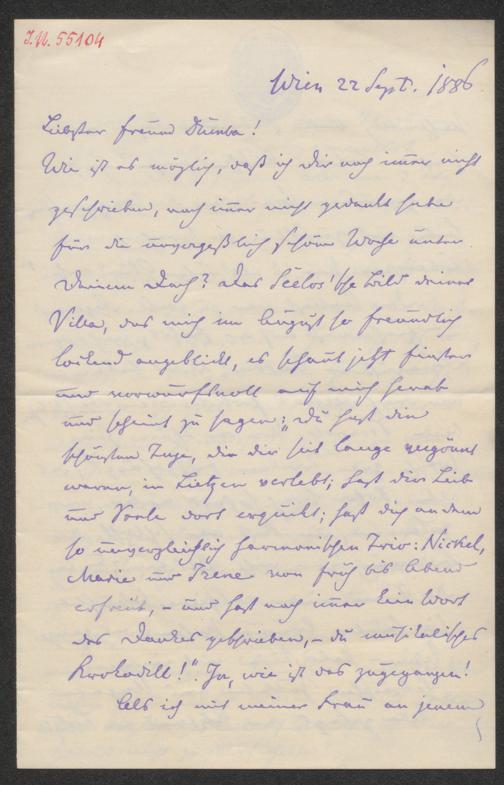 I.N. 55104
Wien 22 Sept. 1886
Liebster Freund Dumba!
Wie ist es möglich, daß ich Dir noch immer nicht
geschrieben, noch immer nicht gedankt habe
für die unvergeßlich schöne Woche unter
Deinem Dach? Das Seelos'sche Bild deiner
Villa, das mich im August so freundlich
lockend angeblickt, es schaut jetzt finster
und vorwurfsvoll auf mich herab
und scheint zu sagen: „Du hast die
schönsten Tage, die dir seit lange vergönnt
waren, in Lietzen verlebt; hast dir Leib
und Seele dort erquickt; hast dich an dem
so unvergleichlich harmonischen Trio: Nickel,
Marie und Irene von früh bis Abend
erfreut, – und hast noch immer kein Wort
des Dankes geschrieben, – du musikalisches
Krokodill!" Ja, wie ist das zugegangen!
Als ich mit meiner Frau an jenem